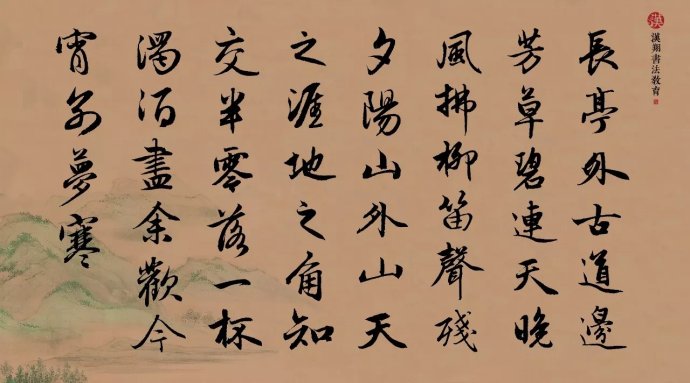 漢翔書法教育
長亭外古道邊
芳草碧連天晚
風拂柳笛聲殘
夕陽山外山天
之涯地之角知
交半零落一杯
濁酒盡余歡今
宵別夢寒